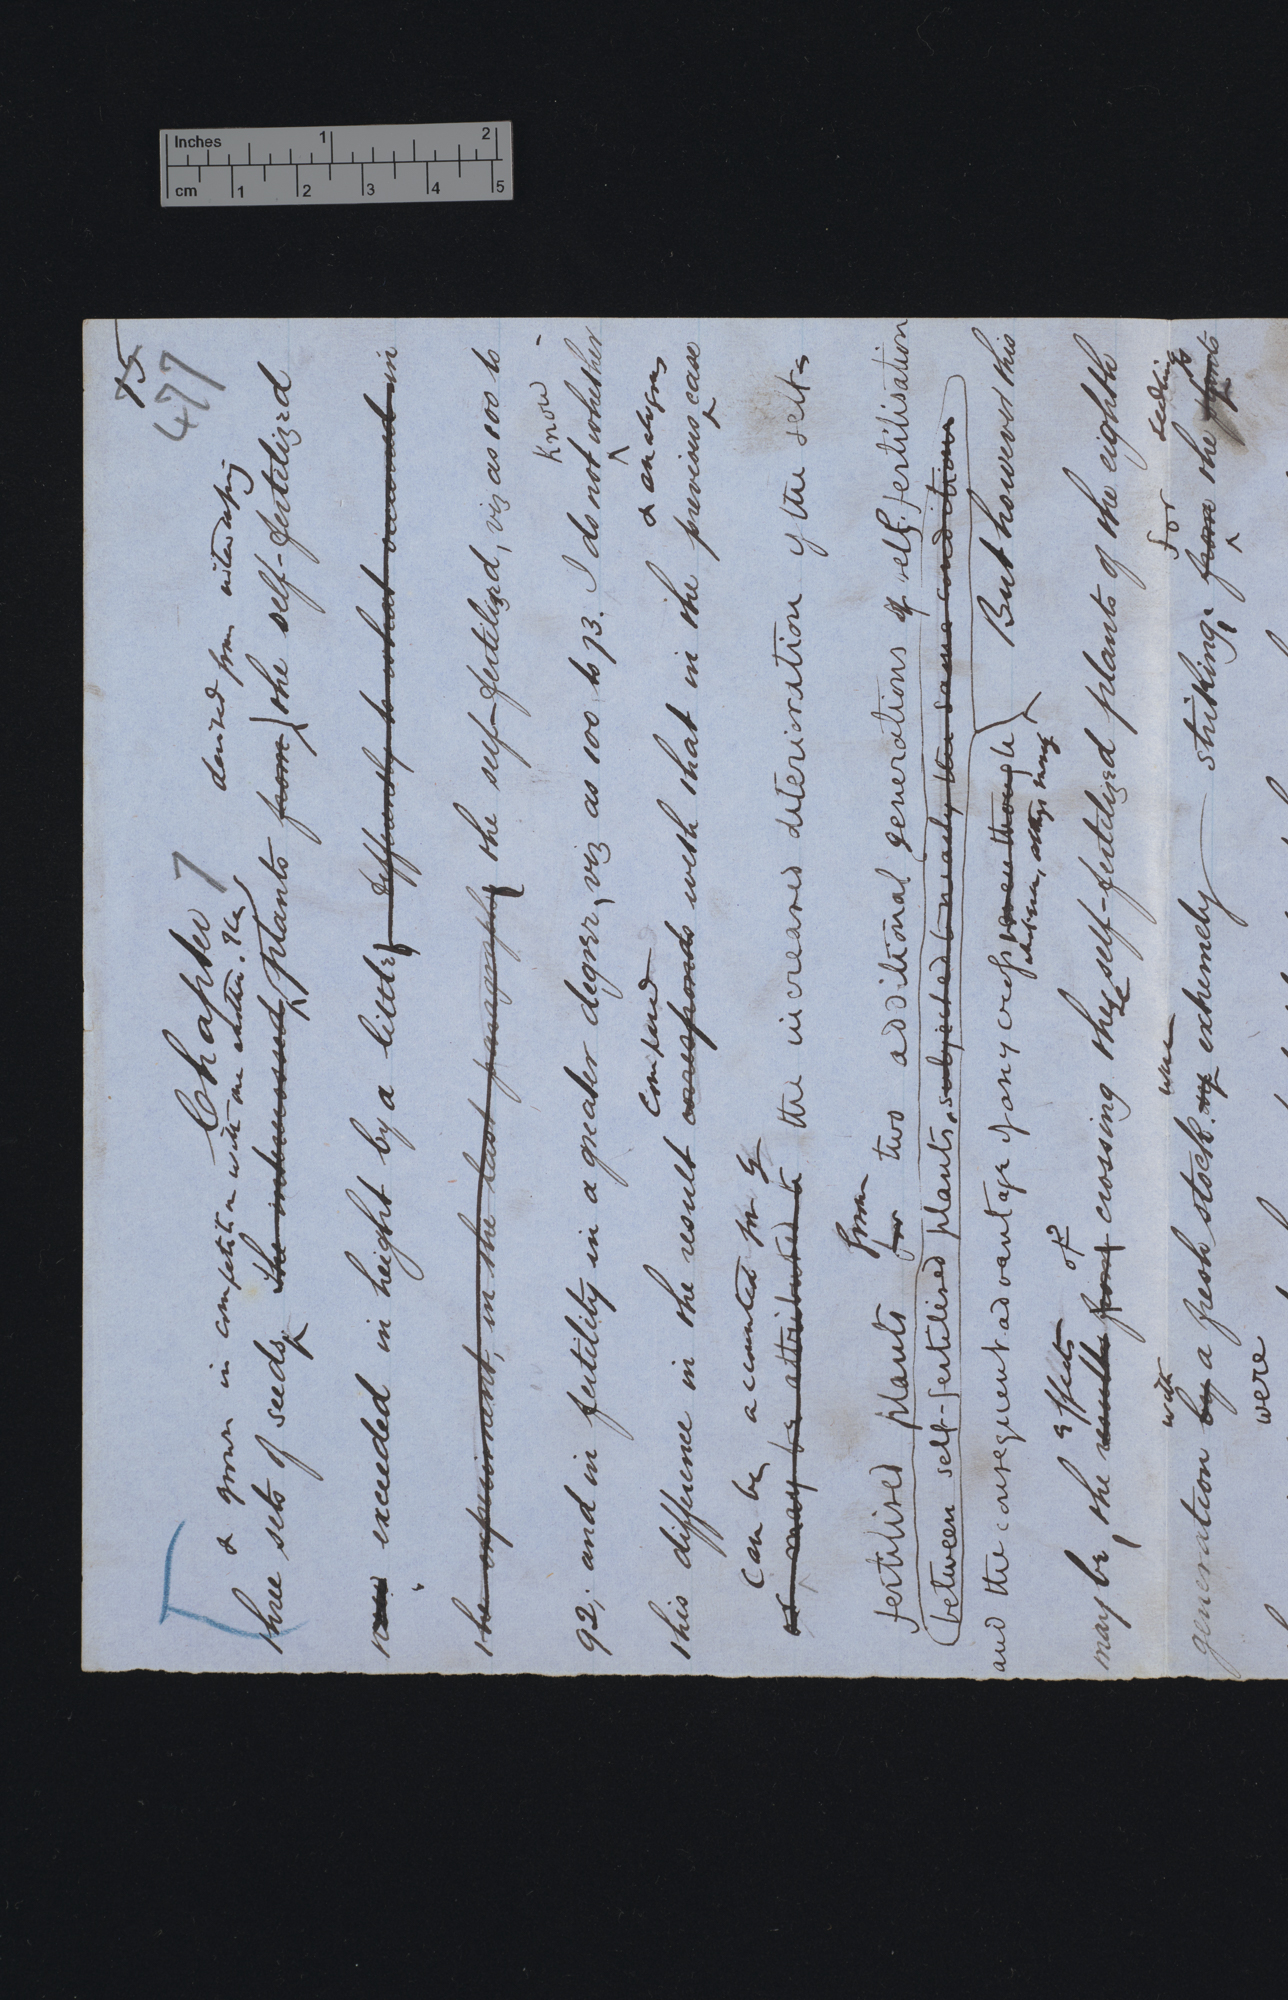 Inches 1 2
cm 1 2 3 4 5
75
477
Chapter 7
& grown in competition with one another, the derived from intercrossing
three sets of seeds, the intercrossed plants from the self-fertilized
exceeded in height by a little differently to what occurred in
the experiment, in the last paragraph, the self-fertilized, viz as 100 to
know
92; and in fertility in a greater degree, viz as 100 to 73. I do not whether
compared & analogous
this difference in the result corresponds with that in the previous case
can be accounted for by
or may be attributed to the increased deterioration of the self-
from
fertilised plants for two additional generations of self-fertilisation
(between self-fertilised plants, subjected to nearly the same conditions
and the consequent advantage of any cross even though But however this
effects of
may be, the results from crossing these self-fertilized plants of the eighth
with were for seedlings
generation by a fresh stock extremely striking; from the
were